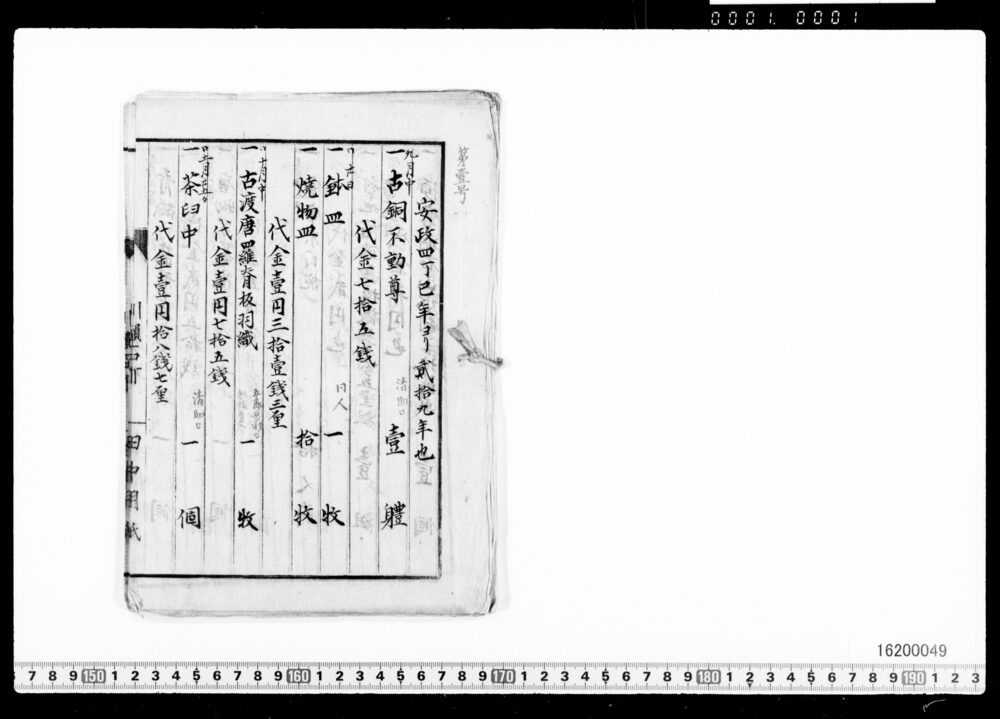 0001 0001
第壹号
安政四丁巳年ヨリ 貳拾九年也
九月中
一 古銅不動尊 壹 軆
代金七拾五銭
一 鉢皿 一 枚
同人
一 焼物皿 拾 枚
代金壹円三拾壹銭三厘
十月中
一 古渡唐羅脊板羽織 一 枚
代金壹円七拾五銭
一 茶臼中 一 個
代金壹円拾八銭七厘
田中用紙
16200049
7 8 9 150 1 2 3 4 5 6 7 8 9 160 1 2 3 4 5 6 7 8 9 170 1 2 3 4 5 6 7 8 9 180 1 2 3 4 5 6 7 8 9 190 1 2 3